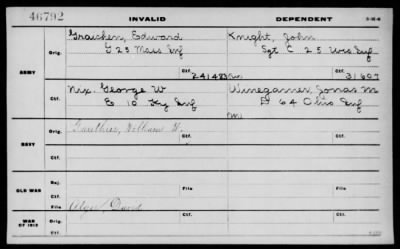 46792
INVALID
DEPENDENT
3-16-6
Graichen, Edward
Knight, John
Orig.
G 25 Mass Inf
Sgt C 25 Wis Inf
ARMY
Ctf. 241483
Ctf. 31607
Nix, George W
Winegarner, Jonas M
Ctf.
E 10 Ky Inf
64 Ohio Inf
Orig.
Gauthier, William H.
NAVY
Ctf.
Rej.
OLD WAR
File
File
Ctf.
Orig.
David
WAR OF 1812
File
File
Ctf.